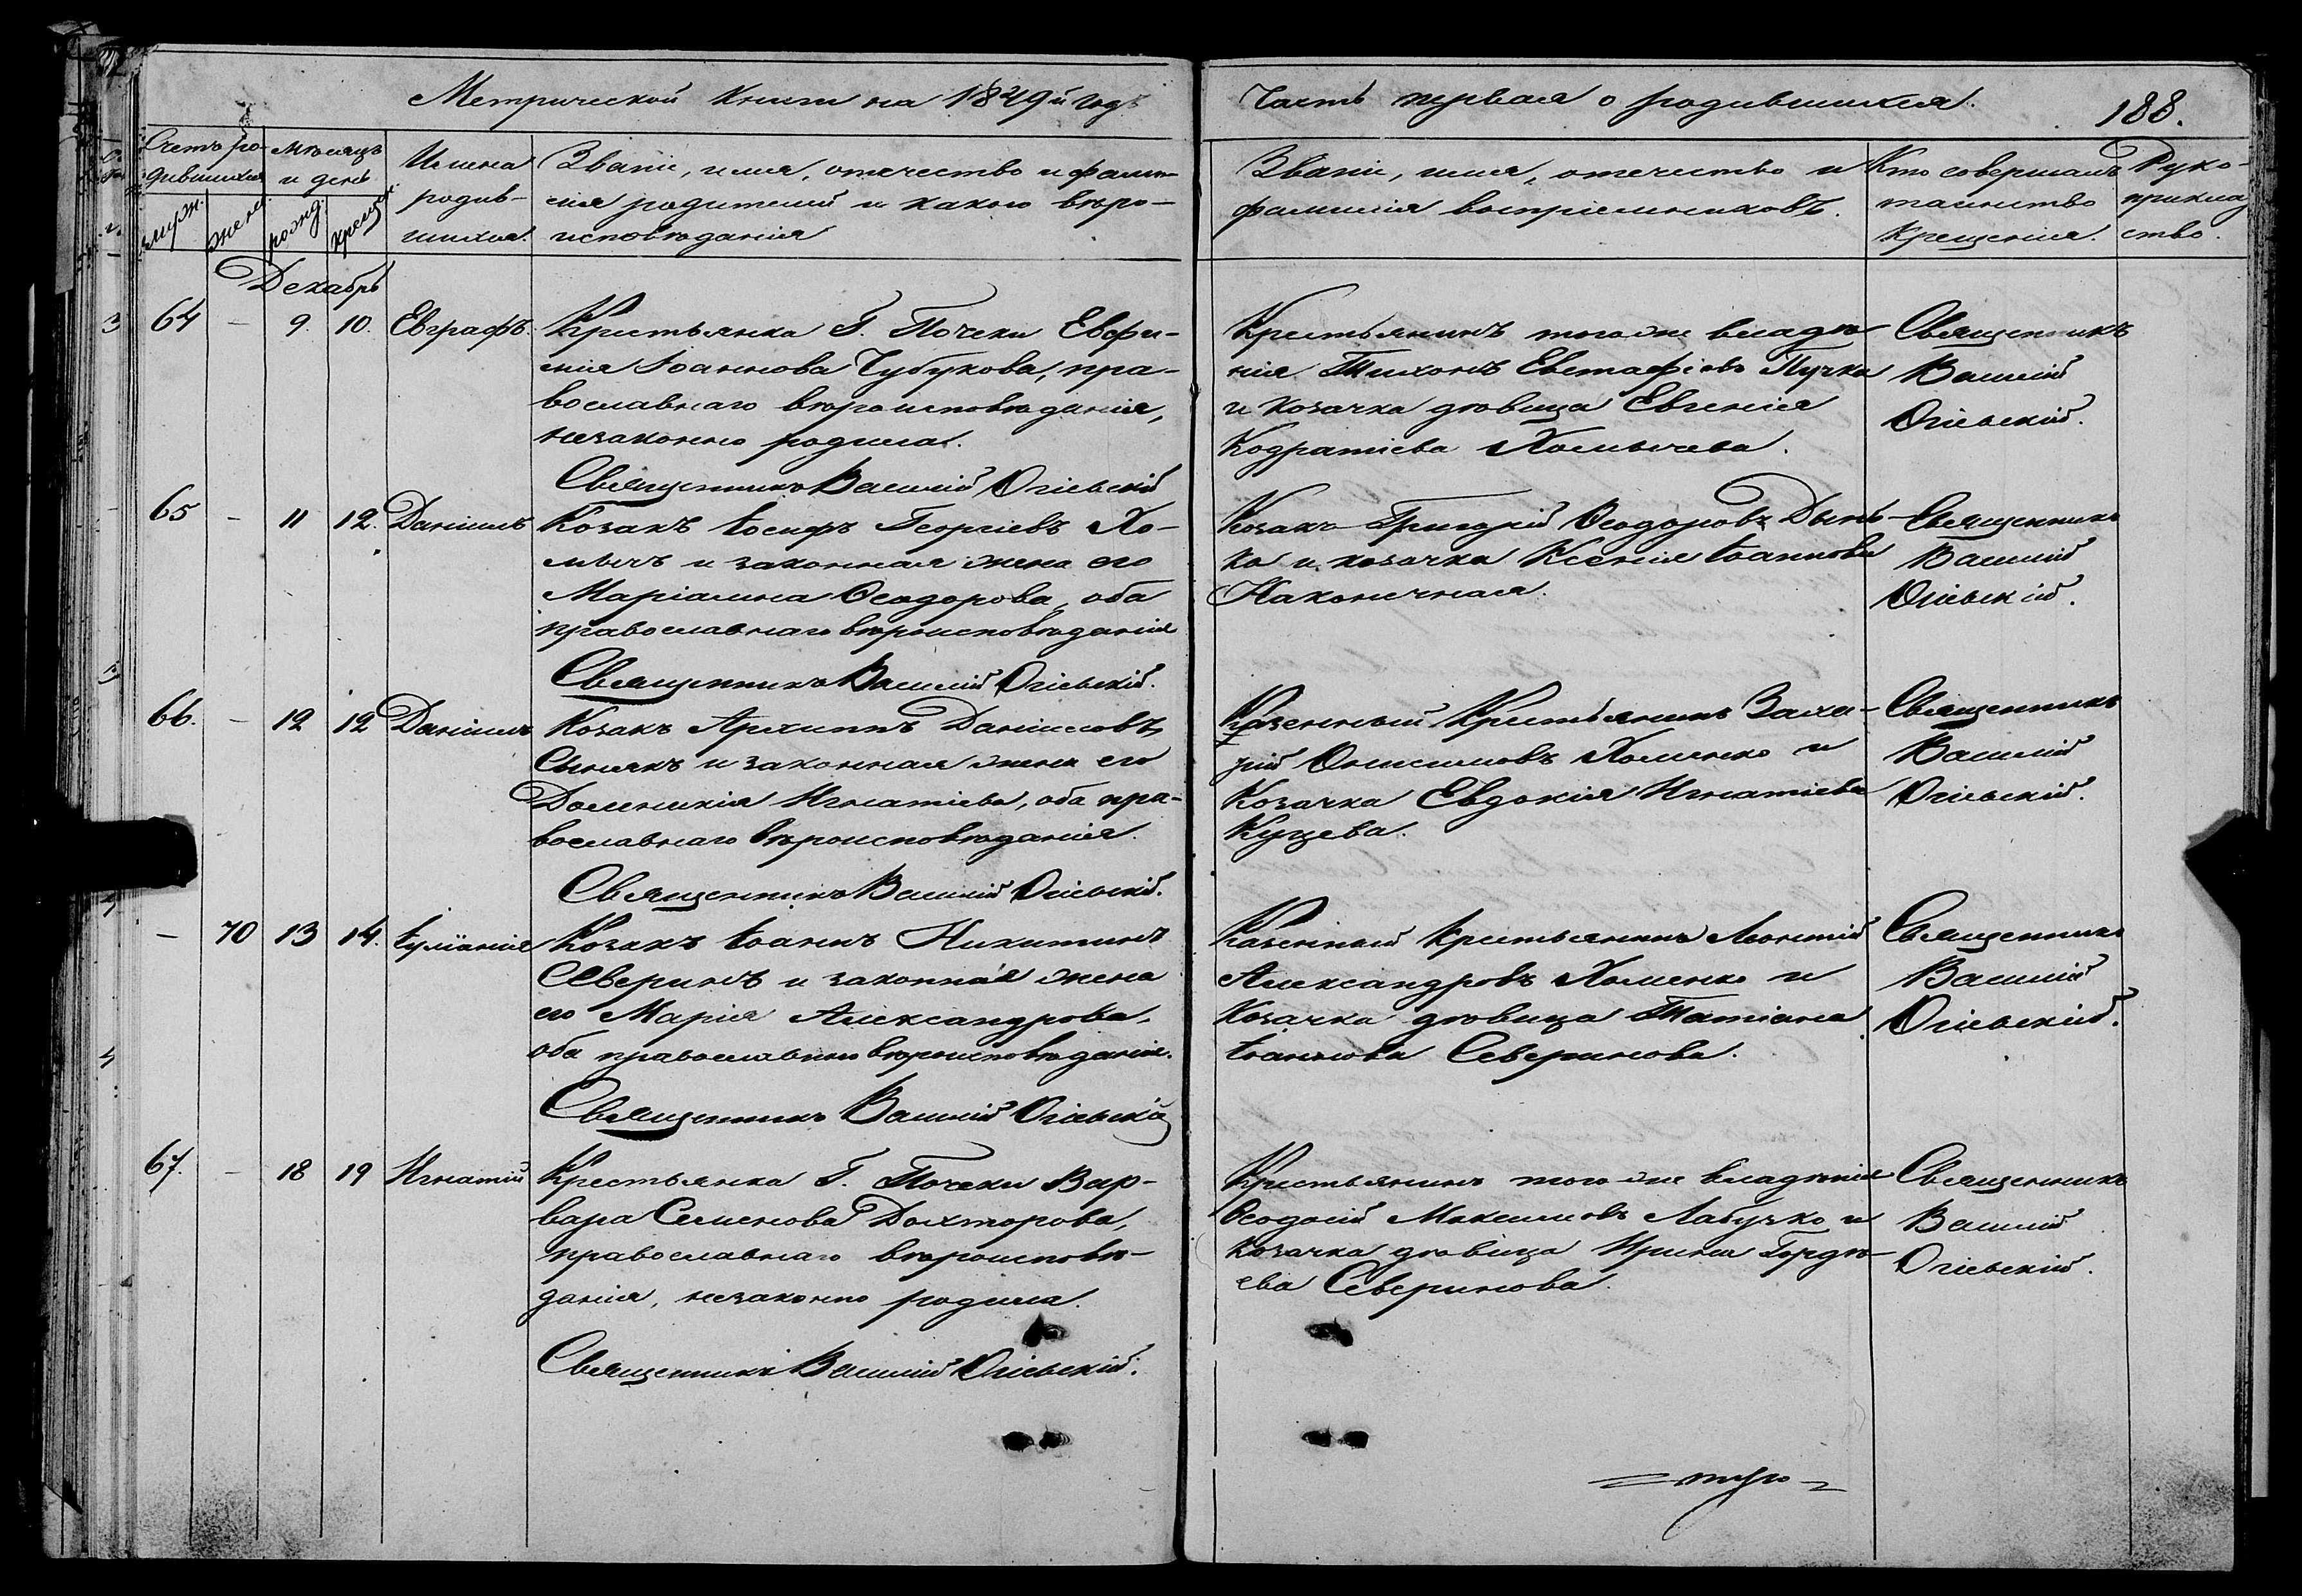 Метрической Книги на 1849й годъ
Часть первая о родившихся.
188.
Счетъ ро-
дившихся
муж.
жен.
Мѣсяцъ
и день
рожд.
крещен.
Имена
родив-
шихся.
Званіе, имя, отечество и фами-
лія родителей и какого вѣро-
исповѣданія
Званіе, имя, отечество и
фамилія воспріемниковъ.
Кто совершалъ
таинство
крещенія.
Руко-
приклад
ство.
Декабрь
64 – 9. 10. Евграфъ.
Крестьянка Г. Почеки Евфи-
мія Іоаннова Чубукова, пра-
вославнаго вѣроисповѣданія,
незаконно родила.
Священникъ Василій Огіевскій
Крестьянинъ того же владѣ
нія Тихонъ Евстафіевъ Пучка
и козачка дѣвица Евгенія
Кодратіева Хомычева.
Священникъ
Василій
Огіевскій.
65 – 11 12. Даніилъ
Козакъ Іосифъ Георгіевъ Хо-
мычъ и законная жена его
Маріамна Ѳеодорова, оба
православнаго вѣроисповѣданія
Священникъ Василій Огіевскій.
Козакъ Григорій Ѳеодоровъ Дынь-
ка и козачка Ксенія Іоаннова
Наконечная.
Священникъ
Василій
Огіевскій.
66. – 12 12 Даніилъ
Козакъ Архиппъ Данииловъ
Сынякъ и законная жена его
Домникія Игнатіева, оба пра-
вославнаго вѣроисповѣданія.
Священникъ Василій Огіевскій.
Казенный Крестьянинъ Заха-
рій Онисимовъ Хоменко и
Козачка Евдокія Игнатіева
Куцева.
Священникъ
Василій
Огіевскій.
– 70 13 14. Іуліанія
Козакъ Іоаннъ Никитинъ
Северинъ и законная жена
его Марія Александрова,
оба православнаго вѣроисповѣданія.
Священникъ Василій Огіевскій
Казенный Крестьянинъ Леонтій
Александровъ Хоменко и
Козачка дѣвица Татіана
Іоаннова Северинова.
Священникъ
Василій
Огіевскій.
67. – 18 19 Игнатій
Крестьянка Г. Почеки Вар-
вара Семенова Дохторова,
православнаго вѣроисповѣ-
данія, незаконно родила.
Священникъ Василій Огіевскій.
Крестьянинъ того же владѣнія
Ѳеодосій Максимовъ Лабучко и
козачка дѣвица Ирина Гордѣ-
ева Северинова.
Священникъ
Василій
Огіевскій.